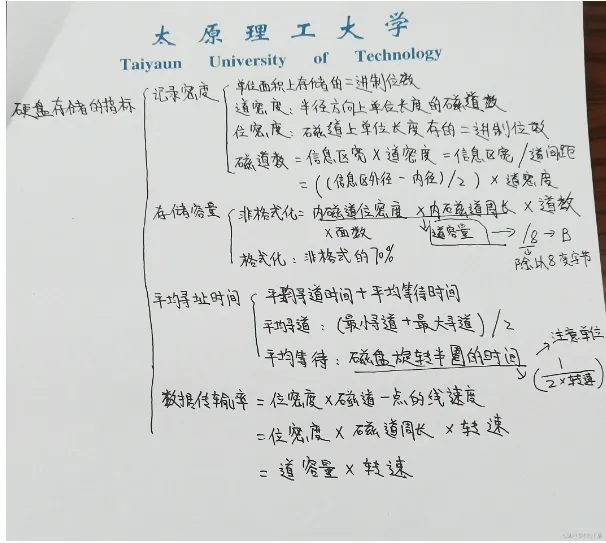 太原理工大学
Taiyaun University of Technology
硬盘存储的指标
记录密度
单位面积上存储的二进制位数
道密度：半径方向上单位长度的磁道数
位密度：磁道上单位长度存的二进制位数
磁道数 = 信息区宽 × 道密度 = 信息区宽 / 道间距
= ((信息区外径 - 内径)/2) × 道密度
存储容量
非格式化 = 内磁道位密度 × 内磁道周长 × 道数
× 面数
道容量 → /8 → B
除以8变字节
格式化：非格式的70%
平均寻址时间
平均寻道时间 + 平均等待时间
平均寻道：(最小寻道 + 最大寻道)/2
平均等待：磁盘旋转半圈的时间
→ 注意单位
(1 / 2×转速)
数据传输率 = 位密度 × 磁道一点的线速度
= 位密度 × 磁道周长 × 转速
= 道容量 × 转速